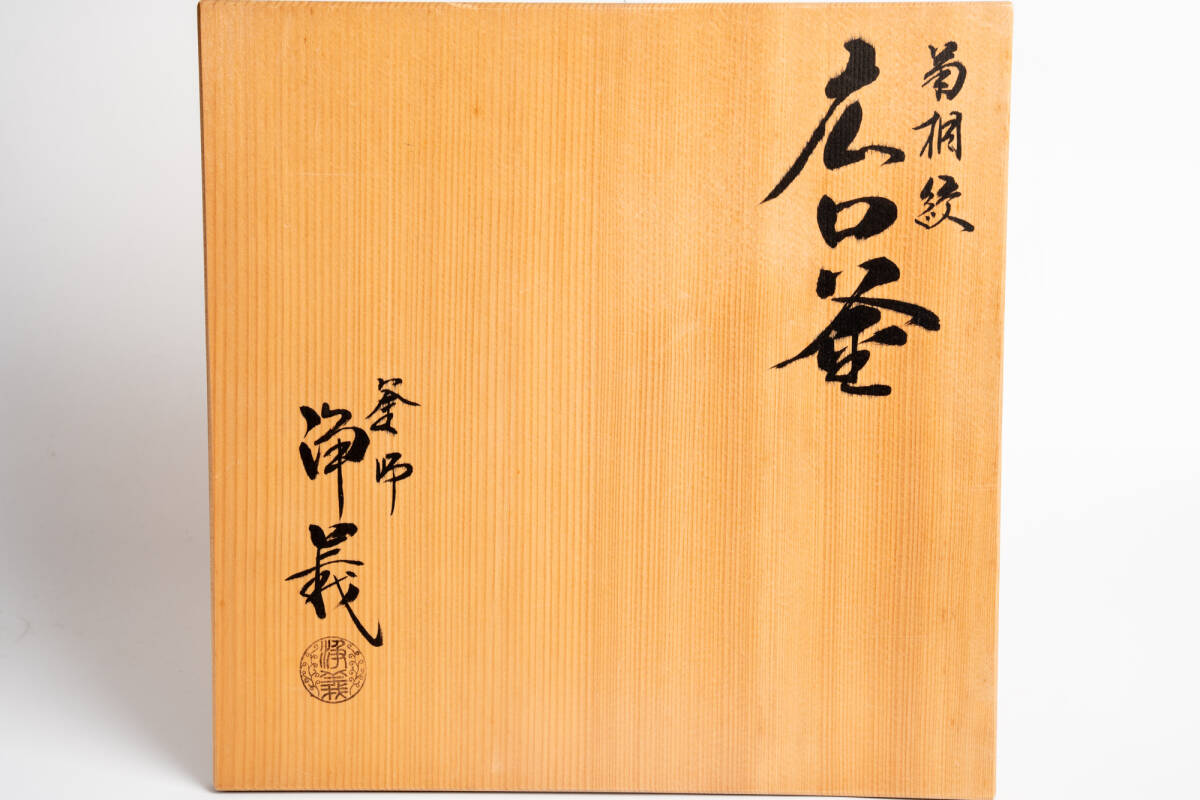 菊桐紋
広口釜
釜師
浄義
浄義